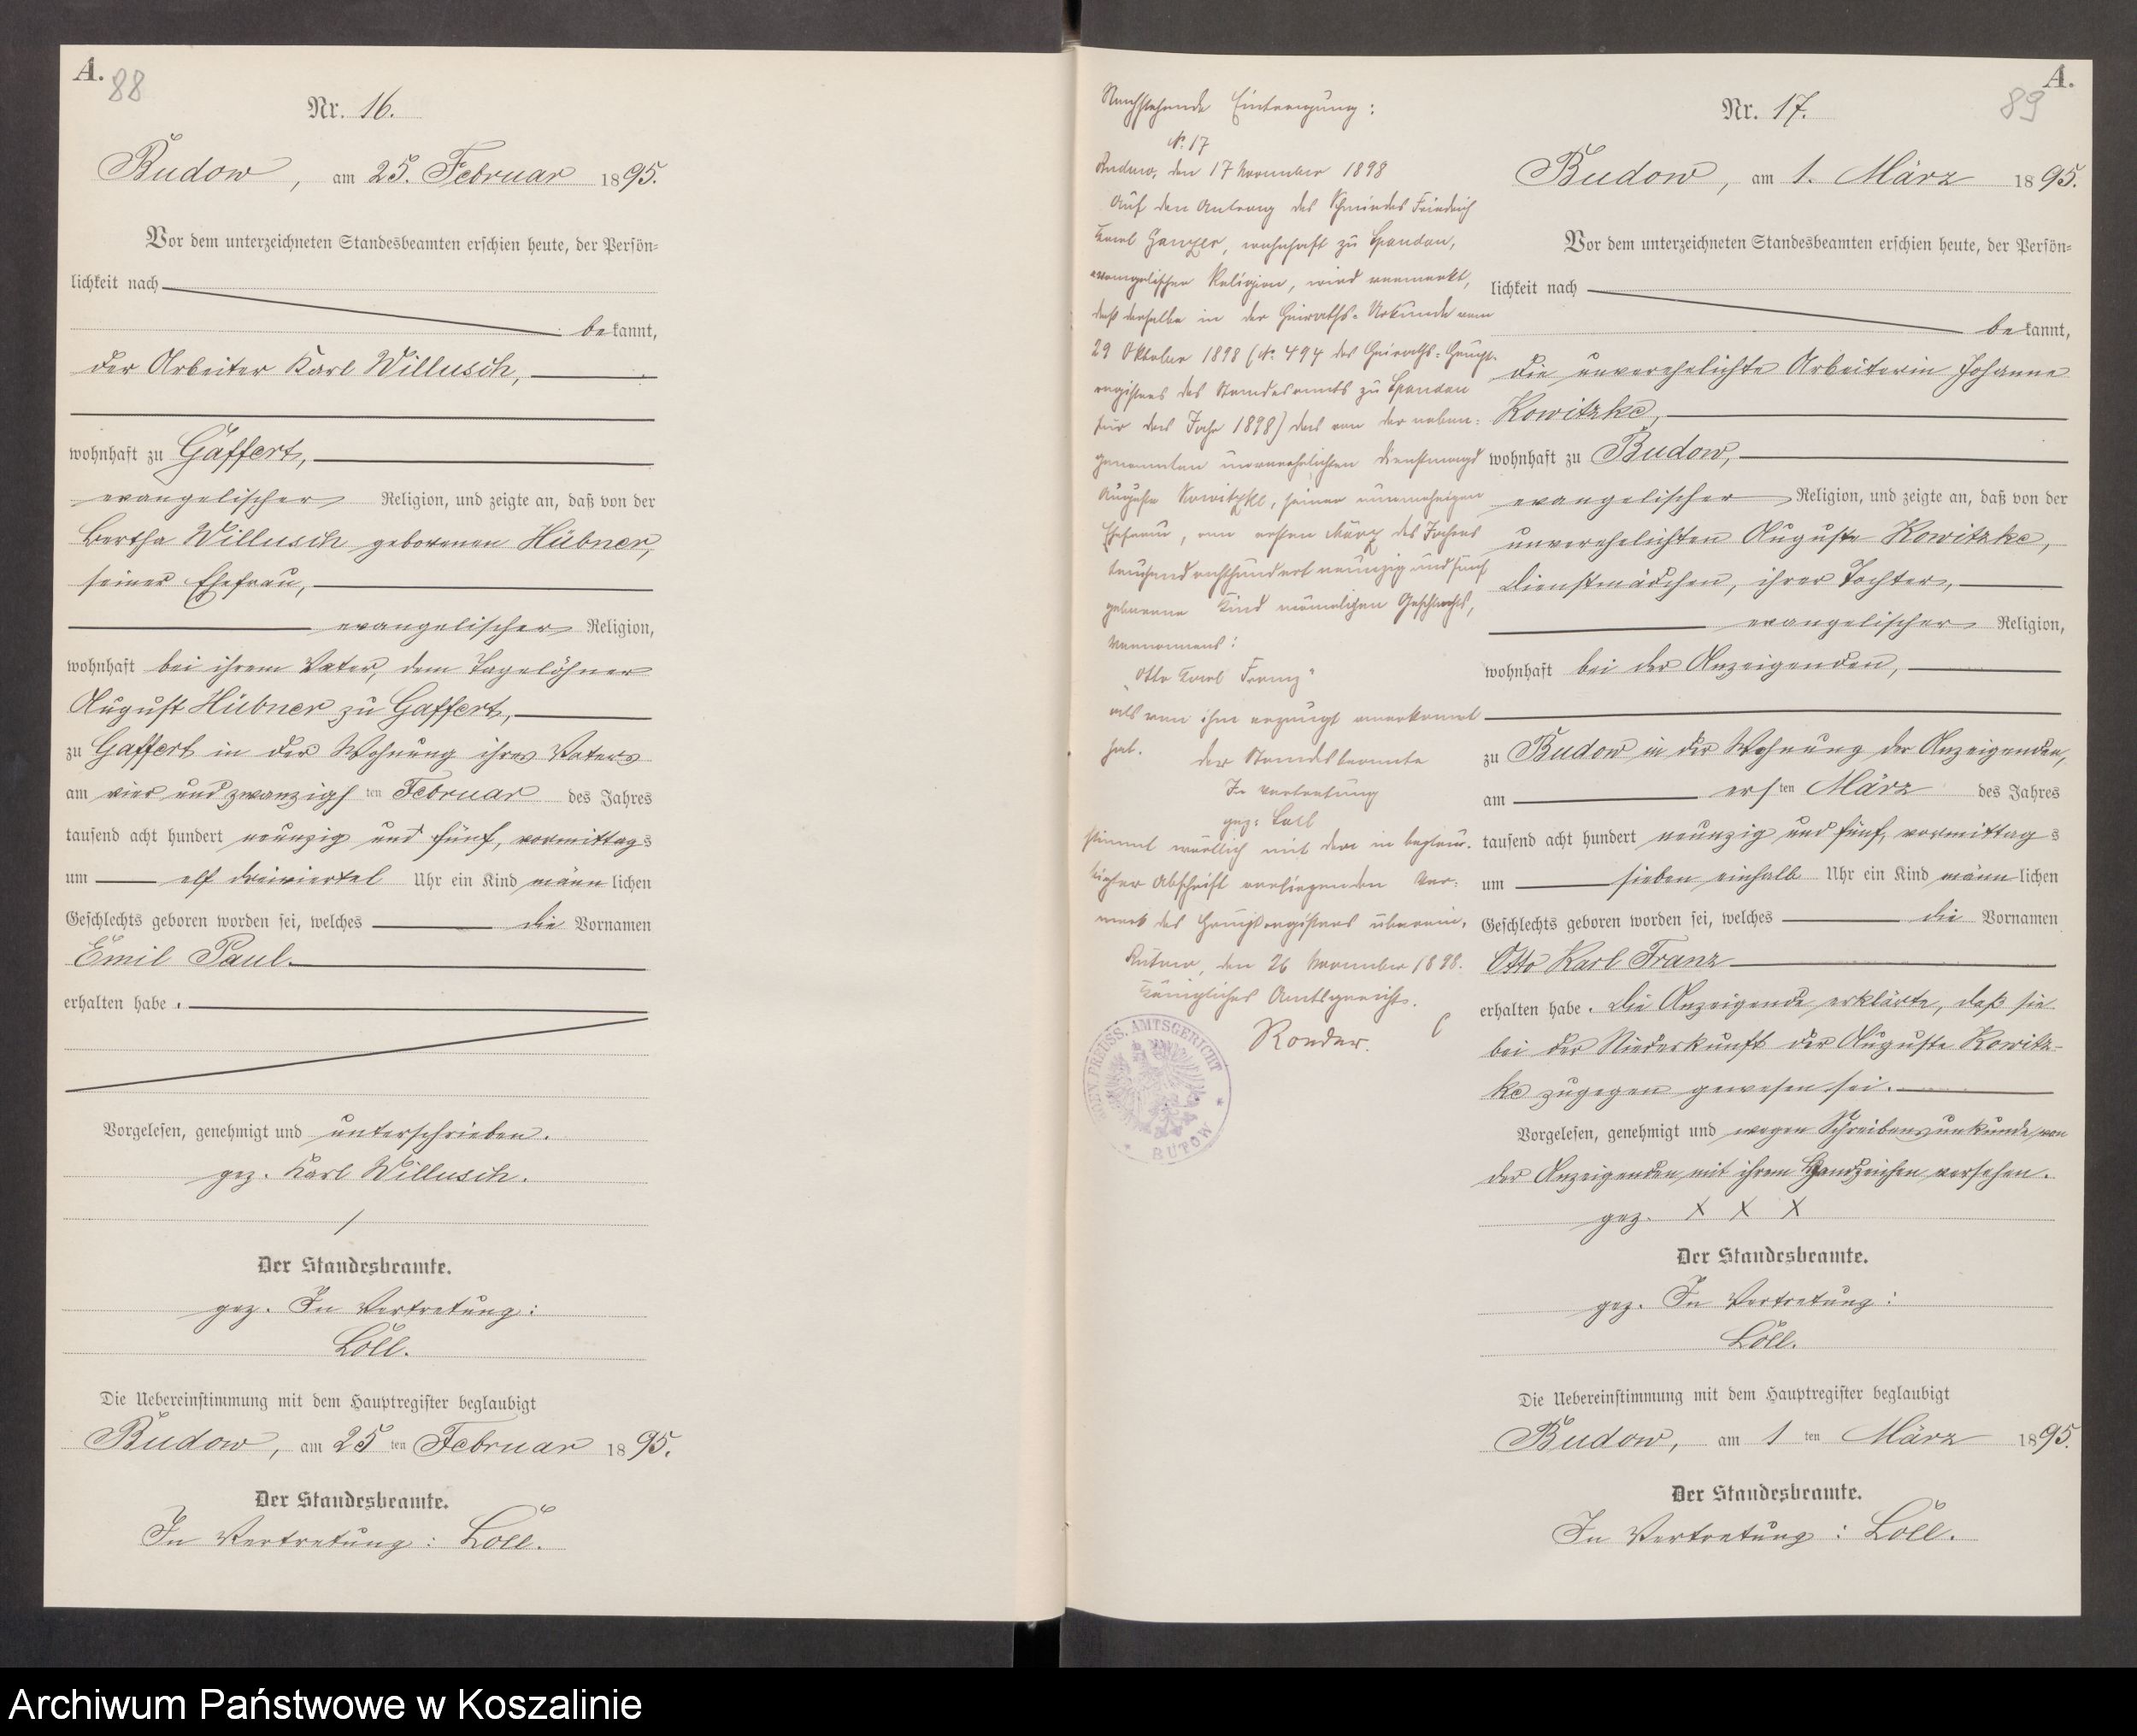 A.
88
Nr. 16.
Budow, am 25. Februar 1895.
Vor dem unterzeichneten Standesbeamten erschien heute, der Persön-
lichkeit nach
bekannt,
der Arbeiter Karl Willusch,
wohnhaft zu Gaffert,
evangelischer Religion, und zeigte an, daß von der
Bertha Willusch geborenen Hübner,
seiner Ehefrau,
evangelischer Religion,
wohnhaft bei ihrem Vater, dem Tagelöhner
August Hübner zu Gaffert,
zu Gaffert in der Wohnung ihres Vaters
am vier und zwanzigsten Februar des Jahres
tausend acht hundert neunzig und fünf, vormittags
um elf dreiviertel Uhr ein Kind männlichen
Geschlechts geboren worden sei, welches die Vornamen
Emil Paul
erhalten habe.
Vorgelesen, genehmigt und unterschrieben.
gez. Karl Willusch.
Der Standesbeamte.
gez. In Vertretung:
Löll.
Die Uebereinstimmung mit dem Hauptregister beglaubigt
Budow, am 25ten Februar 1895.
Der Standesbeamte.
In Vertretung: Löll.
Nachstehende Eintragung:
N. 17
Budow, den 17 November 1898
Auf den Antrag des Schmiedes Friedrich
Karl, wohnhaft zu Spandau,
evangelischer Religion, wird vermerkt,
daß derselbe in der Heiraths-Urkunde vom
29 Oktober 1898 (N. 494 des Heiraths-Haupt-
registers des Standesamts zu Spandau
für das Jahr 1898) das von der neben-
genannten unverehelichten Dienstmagd
Auguste Kowitzke, seiner nunmehrigen
Ehefrau, am ersten März des Jahres
tausend achthundert neunzig und fünf
geborene Kind männlichen Geschlechts,
Vornamens:
"Otto Karl Franz"
als von ihm erzeugt anerkannt
hat.
Der Standesbeamte
In Vertretung
gez: Löll
Stimmt wörtlich mit dem in beglau-
bigter Abschrift vorliegenden Ver-
merk des Hauptregisters überein.
Bütow, den 26 November 1898.
Königliches Amtsgericht.
KOEN. PREUSS. AMTSGERICHT
* BÜTOW *
A.
89
Nr. 17.
Budow, am 1. März 1895.
Vor dem unterzeichneten Standesbeamten erschien heute, der Persön-
lichkeit nach
bekannt,
die unverehelichte Arbeiterin Johanne
Kowitzke,
wohnhaft zu Budow,
evangelischer Religion, und zeigte an, daß von der
unverehelichten Auguste Kowitzke,
Dienstmädchen, ihrer Tochter,
evangelischer Religion,
wohnhaft bei der Anzeigenden,
zu Budow in der Wohnung der Anzeigenden,
am ersten März des Jahres
tausend acht hundert neunzig und fünf, vormittags
um sieben einhalb Uhr ein Kind männlichen
Geschlechts geboren worden sei, welches die Vornamen
Otto Karl Franz
erhalten habe. Die Anzeigende erklärte, daß sie
bei der Niederkunft der Auguste Kowitz-
ke zugegen gewesen sei.
Vorgelesen, genehmigt und wegen Schreibensunkunde von
der Anzeigenden mit ihrem Handzeichen versehen.
gez. X X X
Der Standesbeamte.
gez. In Vertretung:
Löll.
Die Uebereinstimmung mit dem Hauptregister beglaubigt
Budow, am 1ten März 1895.
Der Standesbeamte.
In Vertretung: Löll.
Archiwum Państwowe w Koszalinie